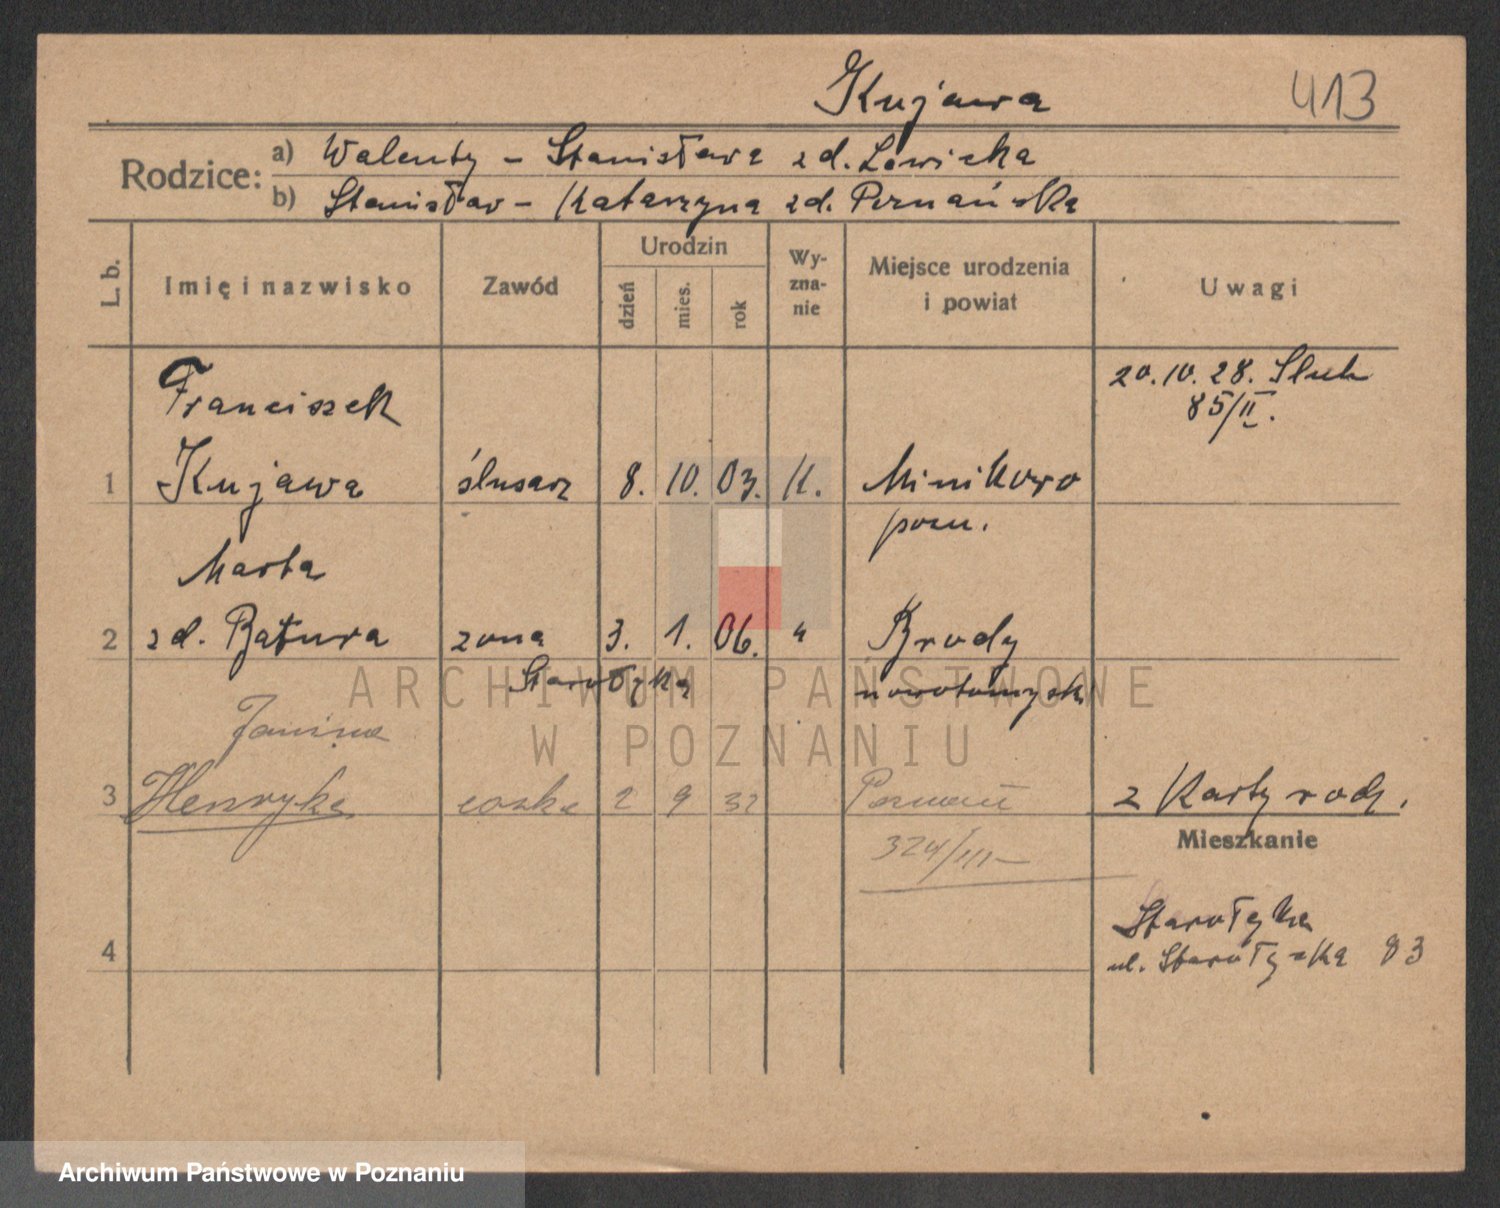 Kujawa 413
Rodzice: a) Walenty – Stanisława zd. Lewicka
b) Stanisław – Katarzyna zd. Poznańska
L. b. Imię i nazwisko Zawód Urodzin dzień mies. rok Wy-zna-nie Miejsce urodzenia i powiat Uwagi
Franciszek 20.10.28. Slub
85/II.
1 Kujawa ślusarz 8. 10. 03. K. Minikowo
pozn.
Marta
2 zd. Batura zona 3. 1. 06. " Brody
Starołęka nowotomysk
Janina
3 Henryka corka 2 9 32 Poznań z Karty rodz.
324/III
Mieszkanie
4 Starołęka
ul. Starołęcka 83
ARCHIWUM PAŃSTWOWE
W POZNANIU
Archiwum Państwowe w Poznaniu